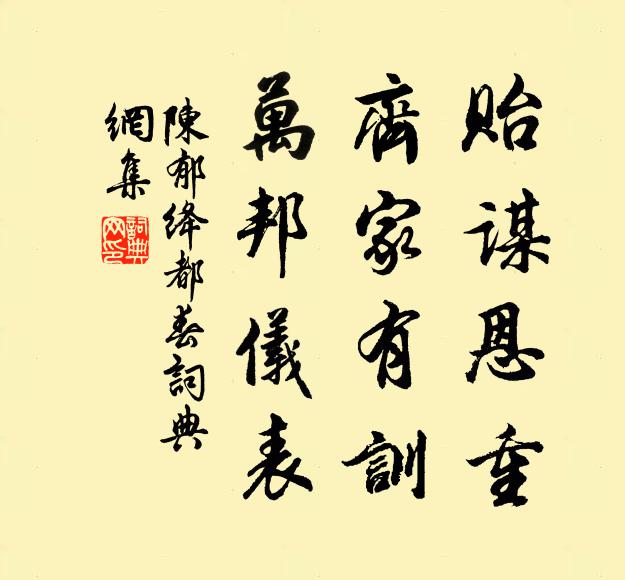 貽謀恩重
齊家有訓
萬邦儀表
陳郁絳都春詞典
網集
詞典
網印